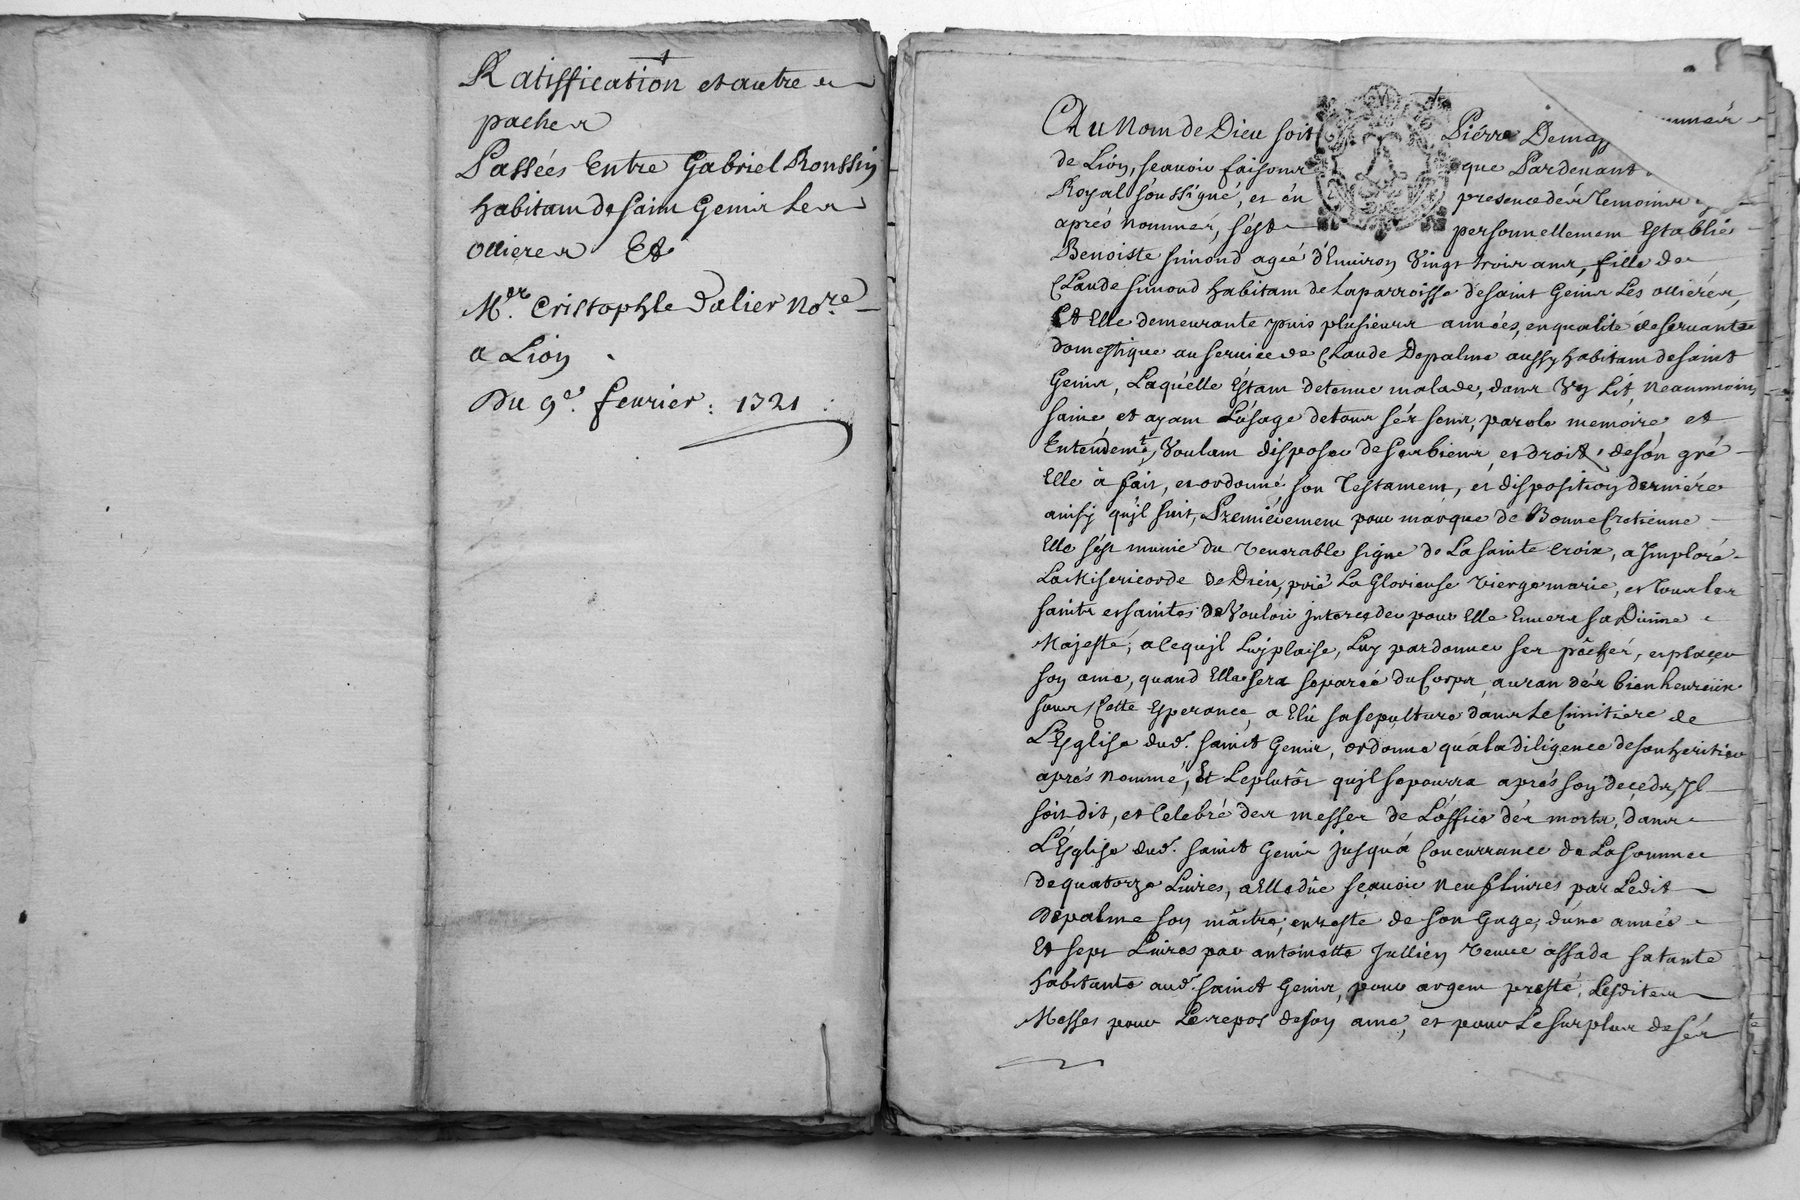 Ratiffication et autres
paches
Passées Entre Gabriel Roussin
habitant de saint Genis Les
Ollieres Et
Me. Cristophle Dalier Nore
a Lion
Du 9e. fevrier : 1721 :
Au Nom de Dieu soit Pierre
de Lion, scavoir faisons que Pardevant
Royal soussigné, et én presence dés Temoins
aprés nommés, s'est personnellement Establie
Benoiste simond agée d'Environ Vingt trois ans, fille de
Claude simond habitant de La parroisse de saint Genis Les ollierés,
Et Elle demeurante puis plusieurs années, en qualité de servante
domestique au service de Claude Depalme aussy habitant de saint
Genis, Laquelle Estant detenue malade, dans Vn Lit, Neanmoins
saine, et ayant L'usage de tous sés sens, parole memoire et
Entendemt, Voulant disposer de ses biens, et droits, de són gré
Elle à fait, et ordonné son Testament, et disposition derniére
ainsy qu'jl suit, Premiérement pour marque de Bonne Cretienne
Elle s'ést munie du Venerable signe de La sainte Croix, a Jmploré
La Misericorde de Dieu, prié La Glorieuse Vierge marie, et tous les
saints et saintes de Vouloir jnterceder pour Elle Envers sa Divine
Majesté, a ce qu'jl Luy plaise, Luy pardonner ses péchés, et placer
son ame, quand Elle sera separée du Corps, au ran dés bien heureux
sous Cette Esperance, a Elû sa sepulture dans Le Cimitiere de
L'Eglise dud. sainct Genis, ordonne qu'à la diligence de son heritier
aprés nommé, Et Le plutôt qu'jl se pourra aprés son decéds, Jl
soit dit, et Celebré des messes de L'office dés morts, dans
L'Eglise dud. sainct Genis jusqu'à Concurrance de La somme
de quatorze Livres, a Elle dûe scavoir Neuf Livres par Ledit
Depalme son maître, en reste de son Gage, d'une année
Et sept Livres par antoinette Jullien Veuve assada sa tante
habitante aud. sainct Genis, pour argent presté, Lesdites
Messes pour Le repos de son ame, et pour Le surplus de sés